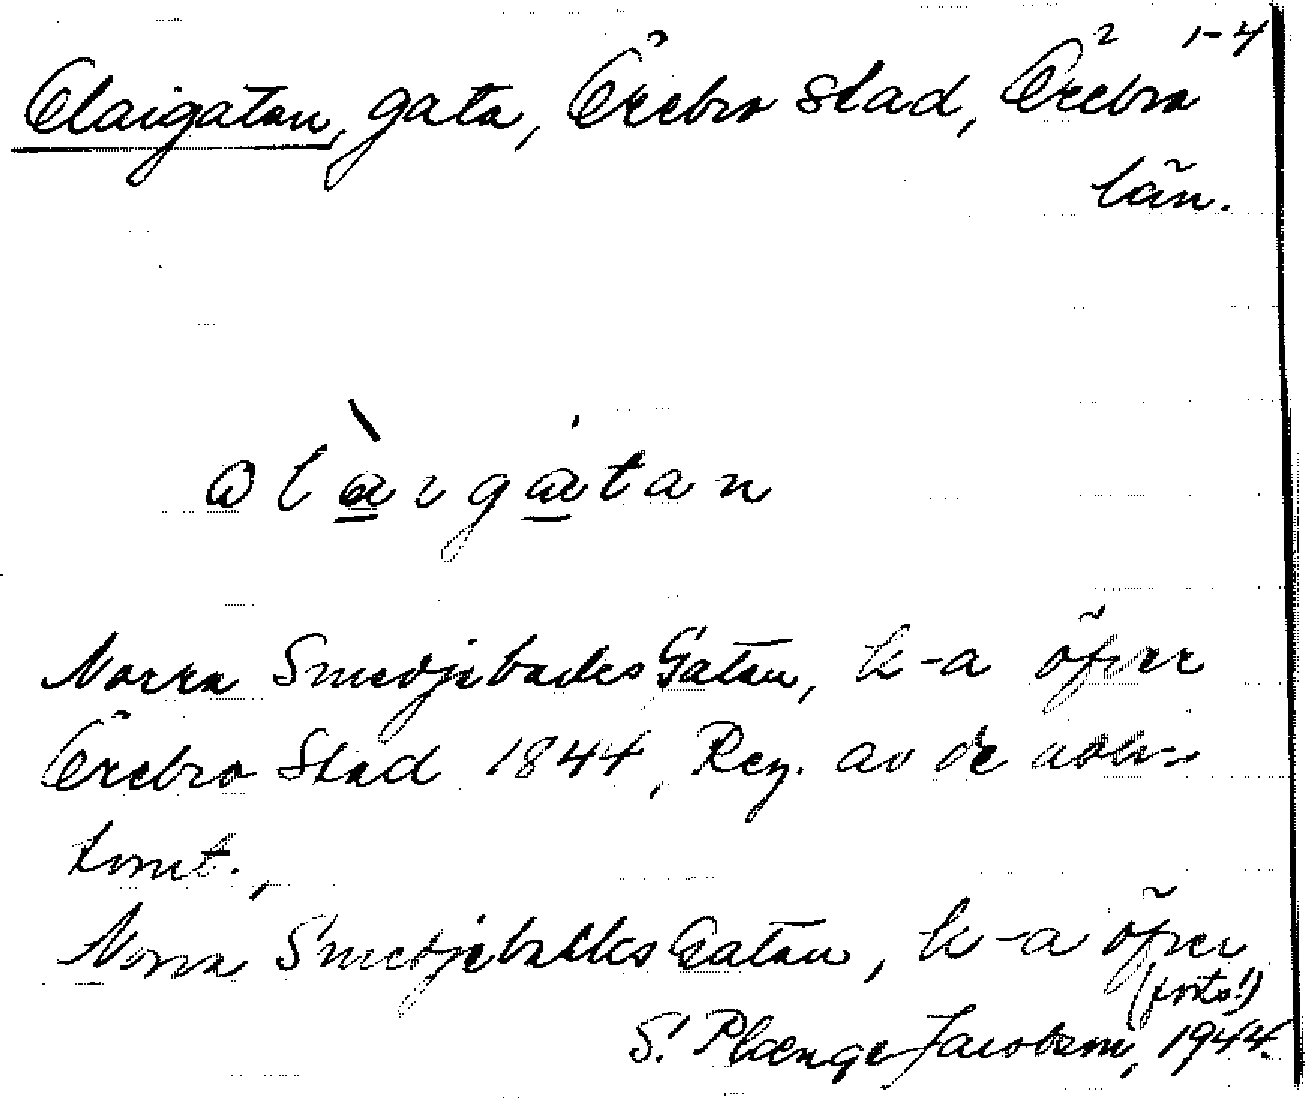 1-4
Olaigatan, gata, Örebro stad, Örebro
län.
olàigátan
Norra SmedjebackesGatan, k-a öfver
Örebro Stad 1844, Rey. av de
tomt.,
Norra SmedjebackesGatan, k-a öfver
(forts!)
S. Plænge Jacobson, 1944.